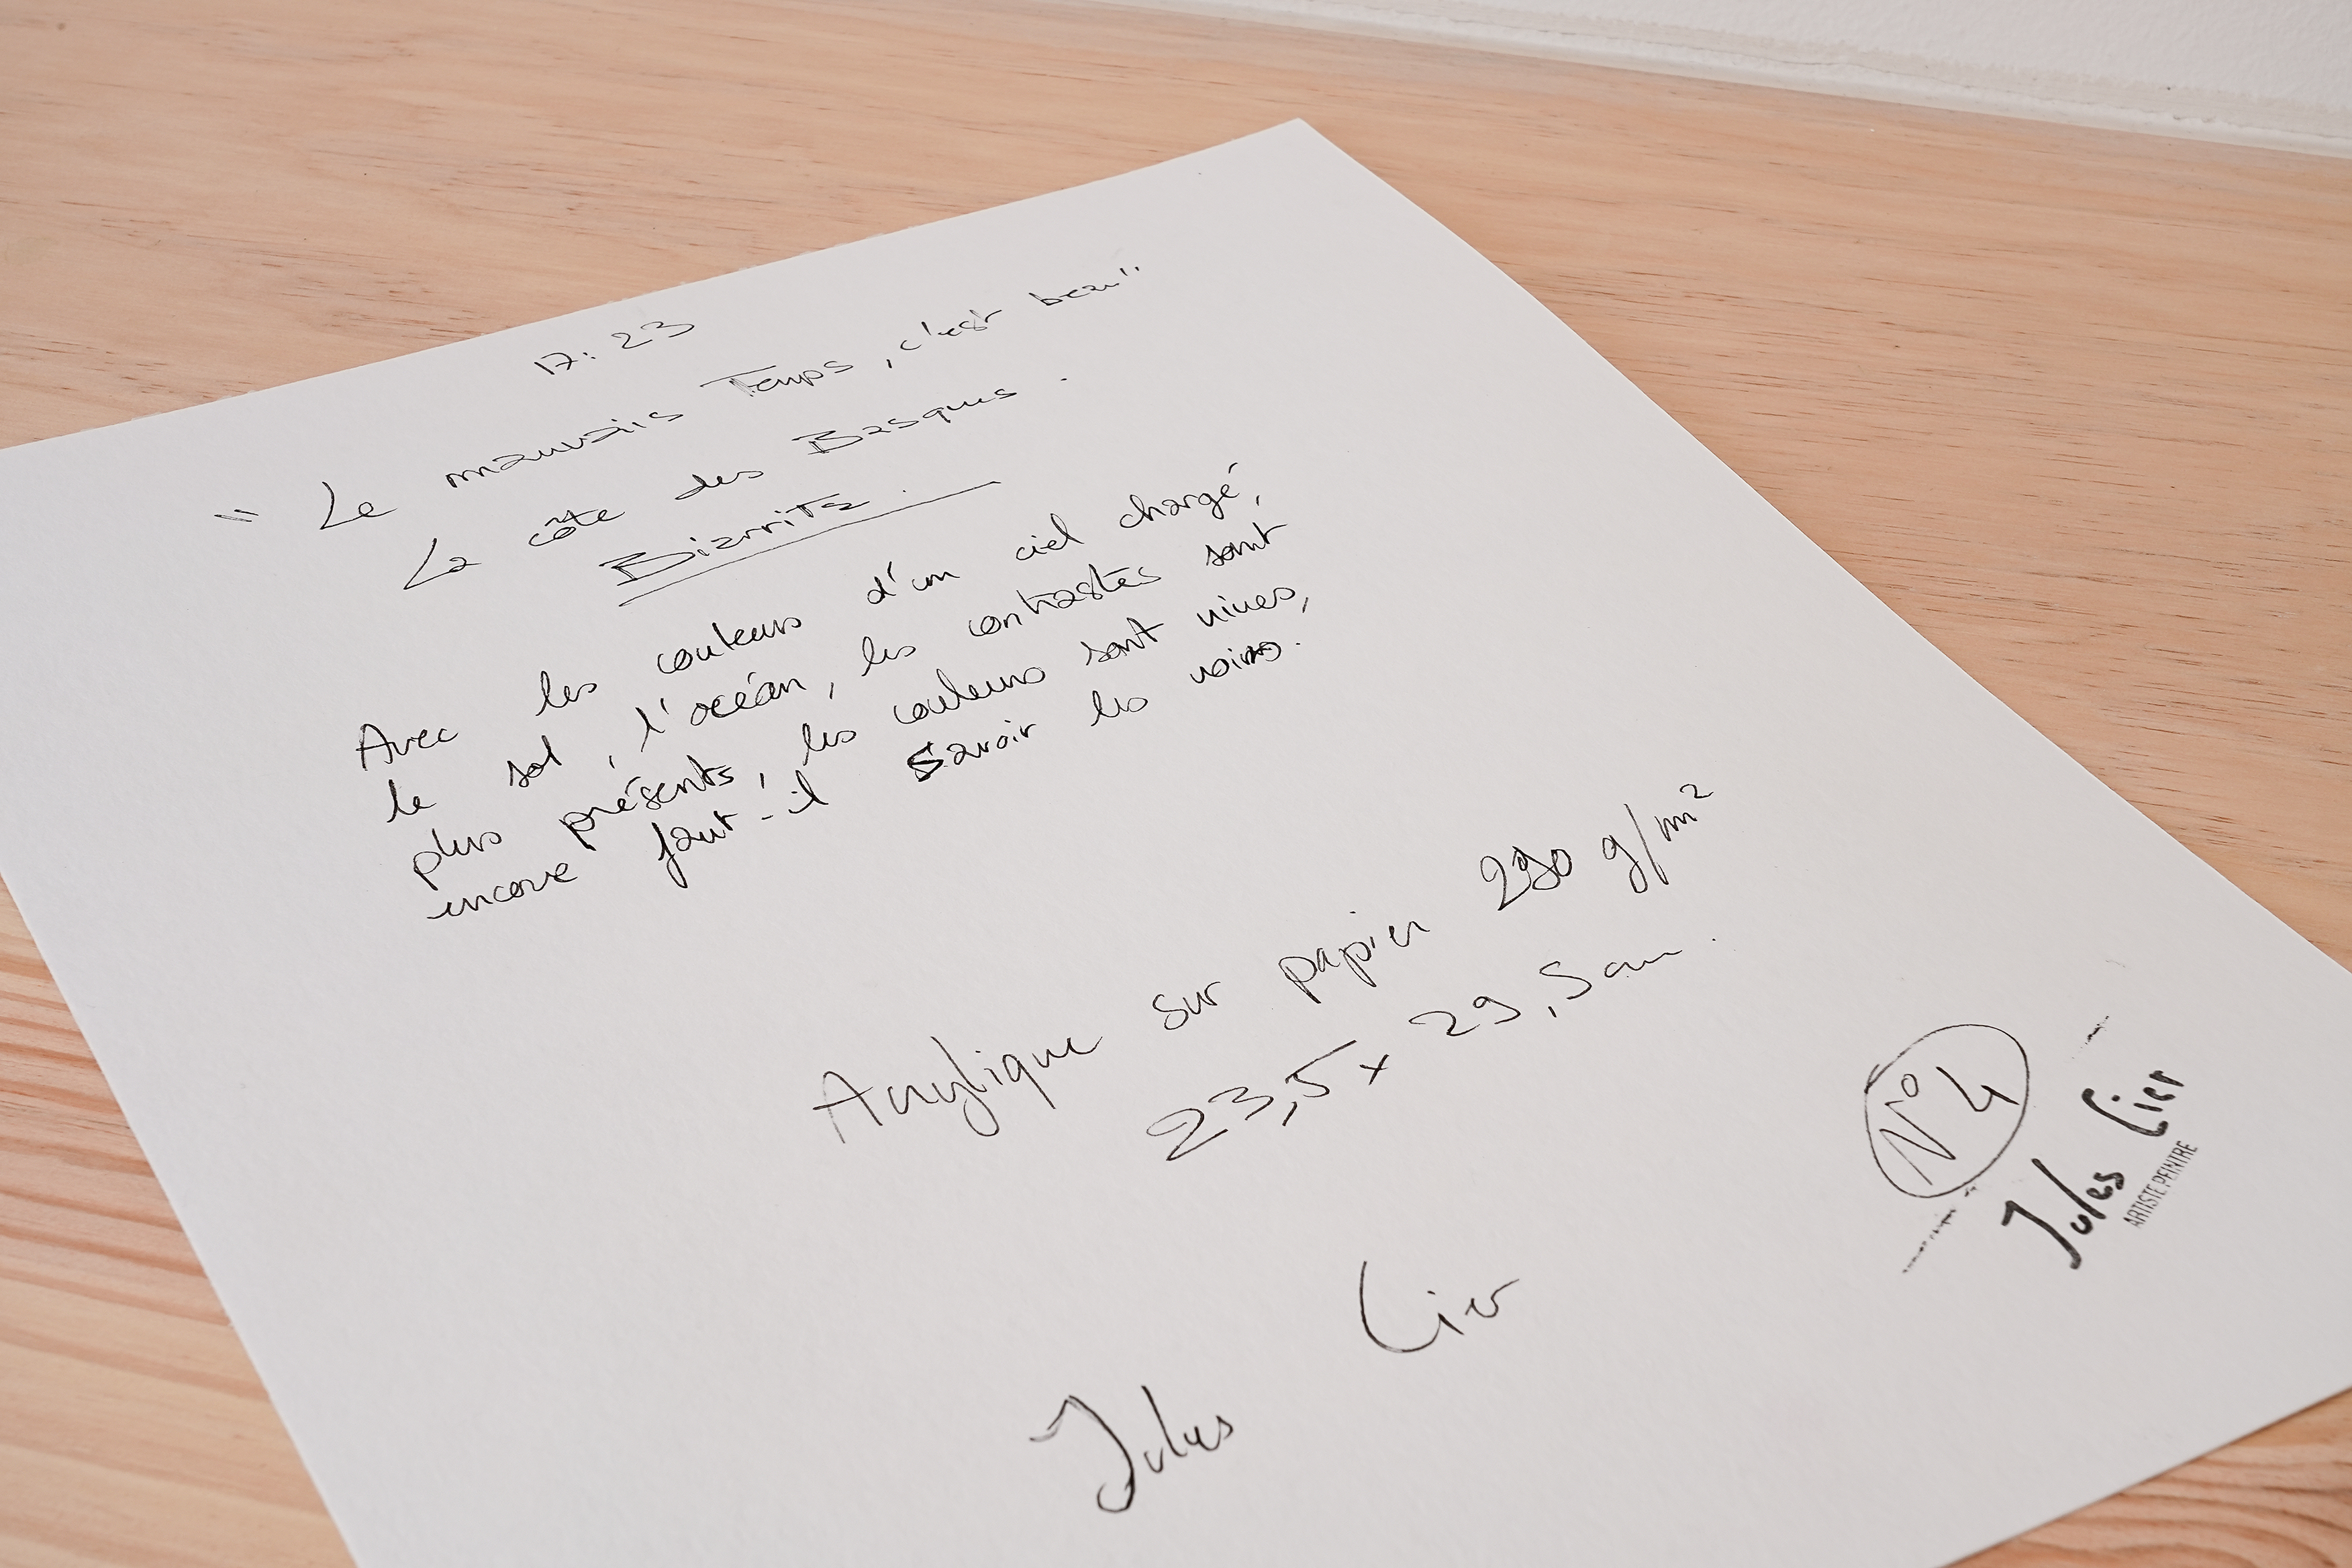 17:23
"Le mauvais Temps, c'est beau"
La côte des Basques.
Biarritz.
Avec les couleurs d'un ciel chargé,
le sol, l'océan, les contrastes sont
plus présents, les couleurs sont vives,
encore faut-il savoir les voir.
Acrylique sur papier 290 g/m²
23,5 x 29,5 cm.
N°4
Jules Cier
ARTISTE PEINTRE
Jules Cier